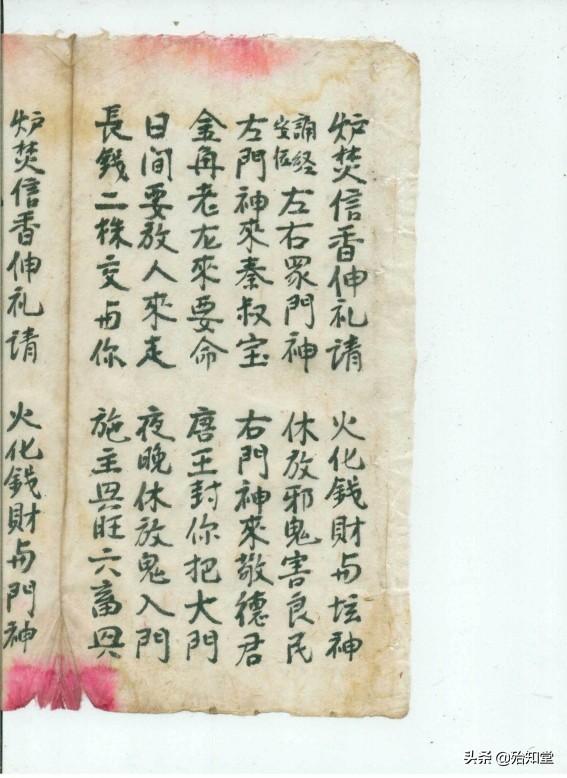 炉焚信香伸礼請 火化錢財与坛神
誦経安位 左右眾門神 休放邪鬼害良民
左門神來秦叔宝 右門神來敬德君
金角老龙來要命 唐王封你把大門
日間要放人來走 夜晚休放鬼入門
長錢二株交与你 施主㒷旺六畜㒷
炉焚信香伸礼請 火化錢財与門神
头条 @殆知堂